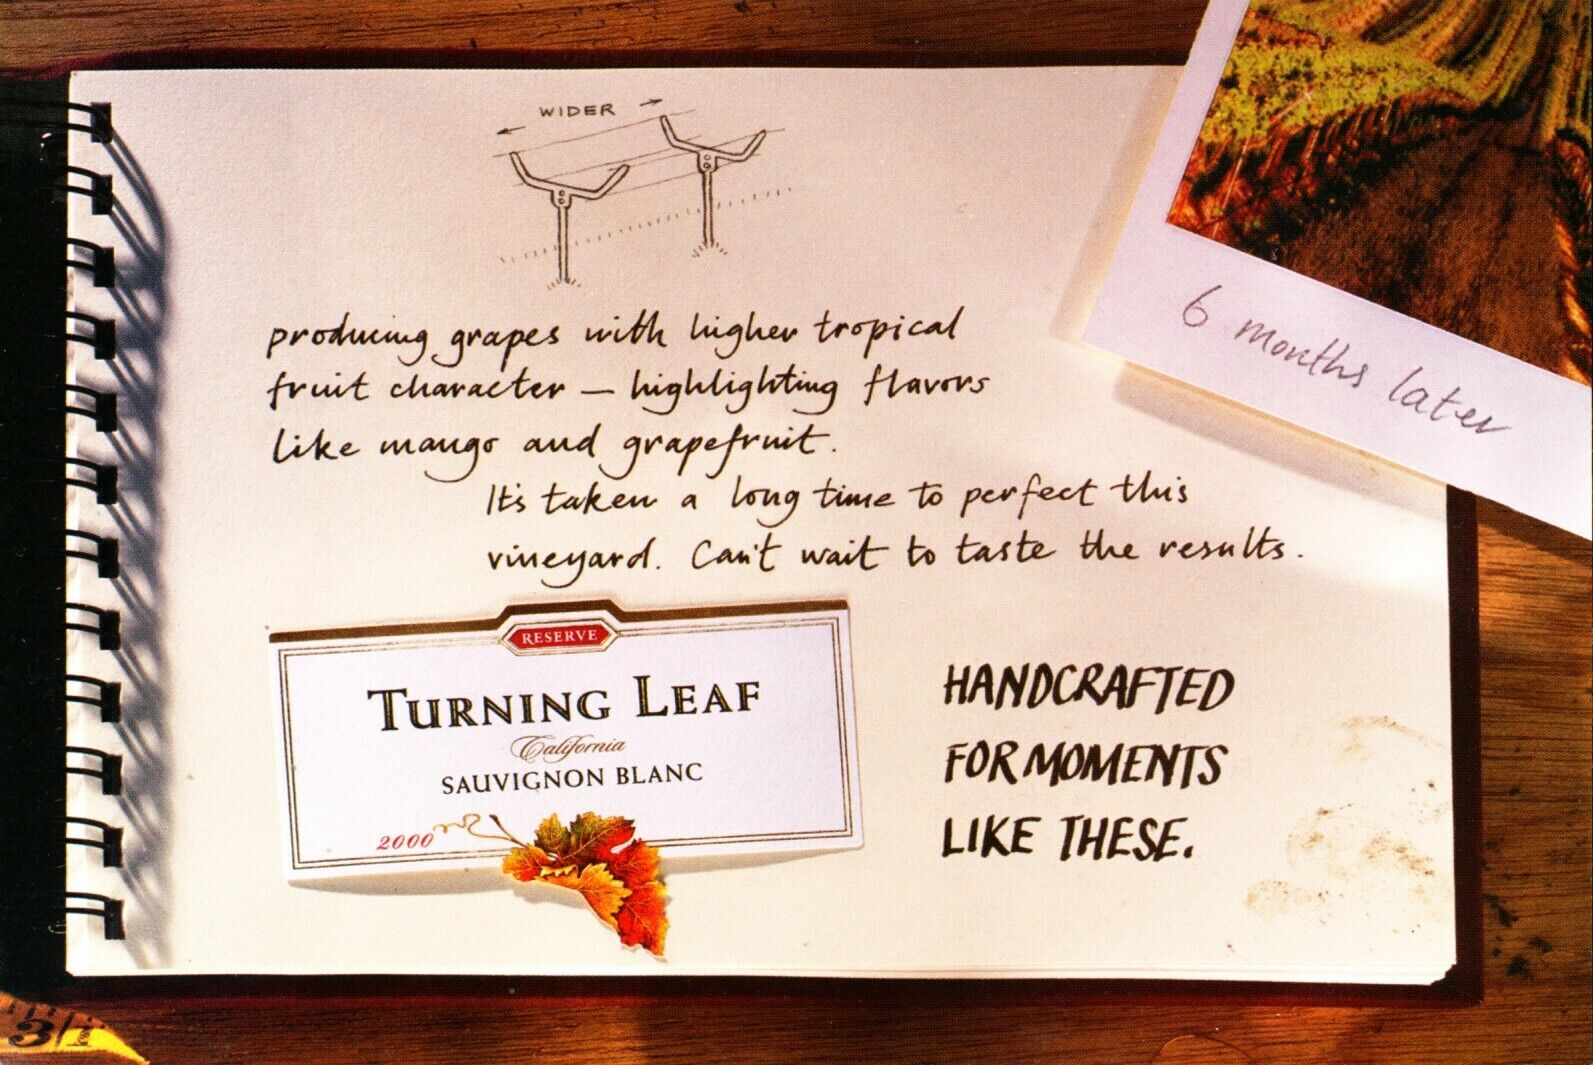 WIDER
6 months later
producing grapes with higher tropical
fruit character – highlighting flavors
like mango and grapefruit.
It's taken a long time to perfect this
vineyard. Can't wait to taste the results.
RESERVE
TURNING LEAF
California
SAUVIGNON BLANC
2000
HANDCRAFTED
FOR MOMENTS
LIKE THESE.
3